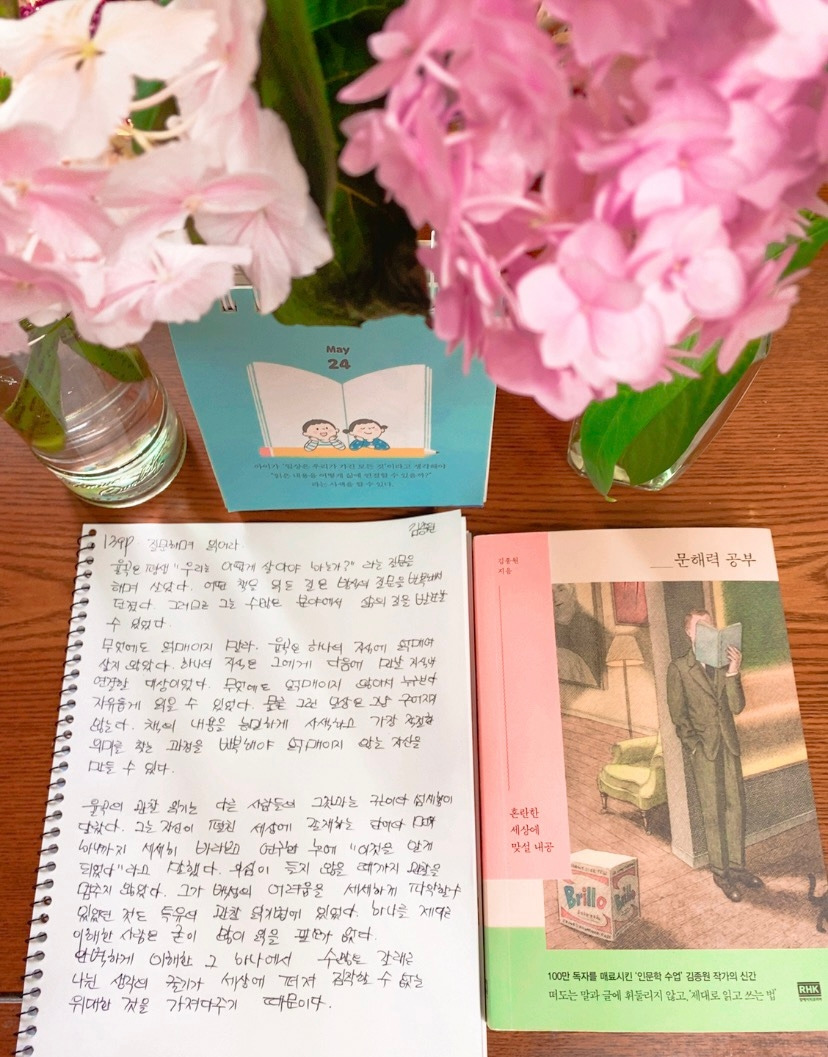 May
24
아이가 '일상은 우리가 가진 모든 것'이라고 생각해야
"읽은 내용을 어떻게 삶에 연결할 수 있을까?"
라는 사색을 할 수 있다.
139p 질문하며 읽어라
김종원
율곡은 평생 "우리는 어떻게 살아야 하는가?" 라는 질문을
하며 살았다. 어떤 책을 읽든 같은 질문을
던졌다. 그러므로 그는 수많은 분야에서 삶의 길을 발견할
수 있었다.
무엇에도 얽매이지 말라. 율곡은 하나의 지식에 얽매여
살지 않았다. 하나의 지식은 그에게 다음에 만날 지식과
연결할 대상이었다. 무엇에도 얽매이지 않아서 누구보다
자유롭게 읽을 수 있었다. 물론 그런 일상은 그냥 주어지지
않는다. 책의 내용을 농밀하게 사색하고 가장 적절한
의미를 찾는 과정을 반복해야 얽매이지 않는 자신을
만들 수 있다.
율곡의 관찰 읽기는 다른 사람들의 그것과는 깊이와 섬세함이
달랐다. 그는 자신이 펼친 세상에 존재하는 단어 하나
하나까지 세세히 바라보고 연구한 후에 "이것을 알게
되었다"라고 말했다. 의심이 들지 않을 때까지 관찰을
멈추지 않았다. 그가 백성의 어려움을 세세하게 파악할 수
있었던 것도 특유의 관찰 읽기법에 있었다. 하나를 제대로
이해한 사람은 굳이 많이 읽을 필요가 없다.
완벽하게 이해한 그 하나에서 수많은 갈래로
나뉜 생각의 줄기가 세상에 퍼져 짐작할 수 없는
위대한 것을 가져다주기 때문이다.
김종원
지음
문해력 공부
혼란한
세상에
맞설 내공
Brillo
100만 독자를 매료시킨 '인문학 수업' 김종원 작가의 신간
떠도는 말과 글에 휘둘리지 않고, '제대로 읽고 쓰는 법'
RHK